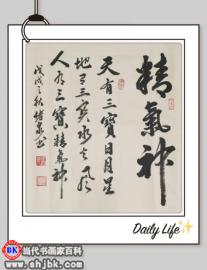 精氣神
天有三寶日月星
地有三寶水火風
人有三寶精氣神
戊戌之秋
Daily Life
BK
当代书画家百科
www.shjbk.com